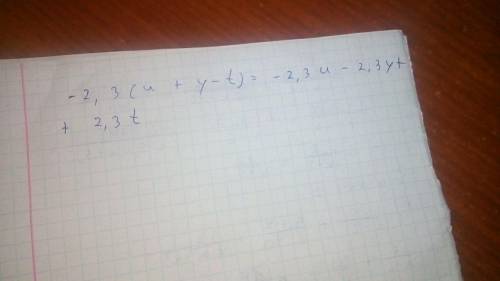 -2,3(u + y-t) = -2,3u - 2,3y+
+ 2,3t